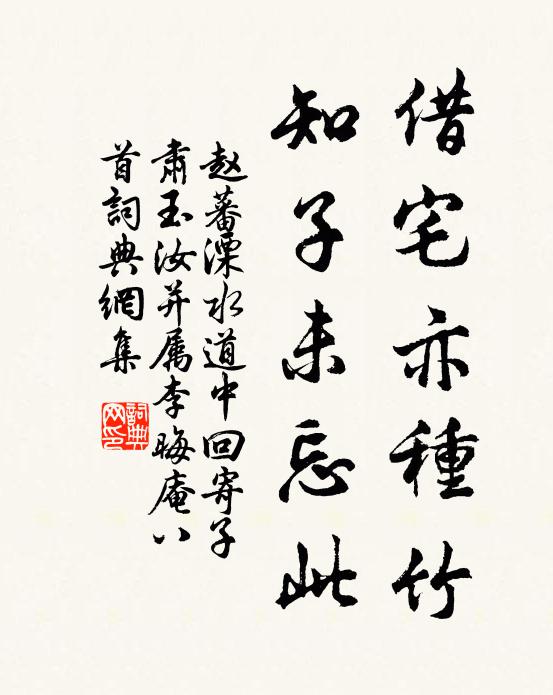 借宅亦種竹
知子未忘此
赵蕃溧水道中回寄子
肃玉汝并属李晦庵八
首詞典網集
詞典网印